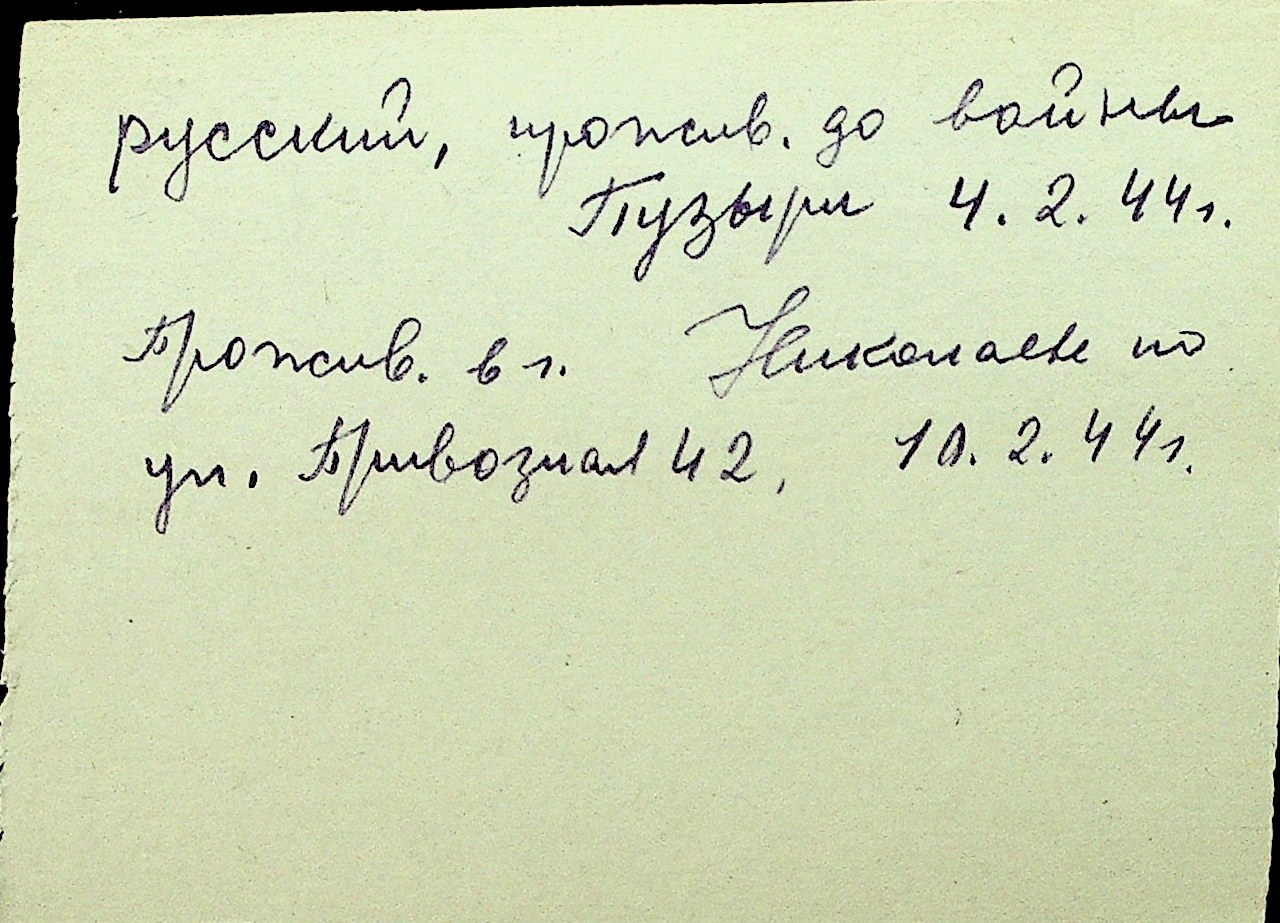 русский, прожив. до войны
Пузыри 4.2.44г.
Прожив. в г. Николаеве по
ул. Привозная 42, 10.2.44г.